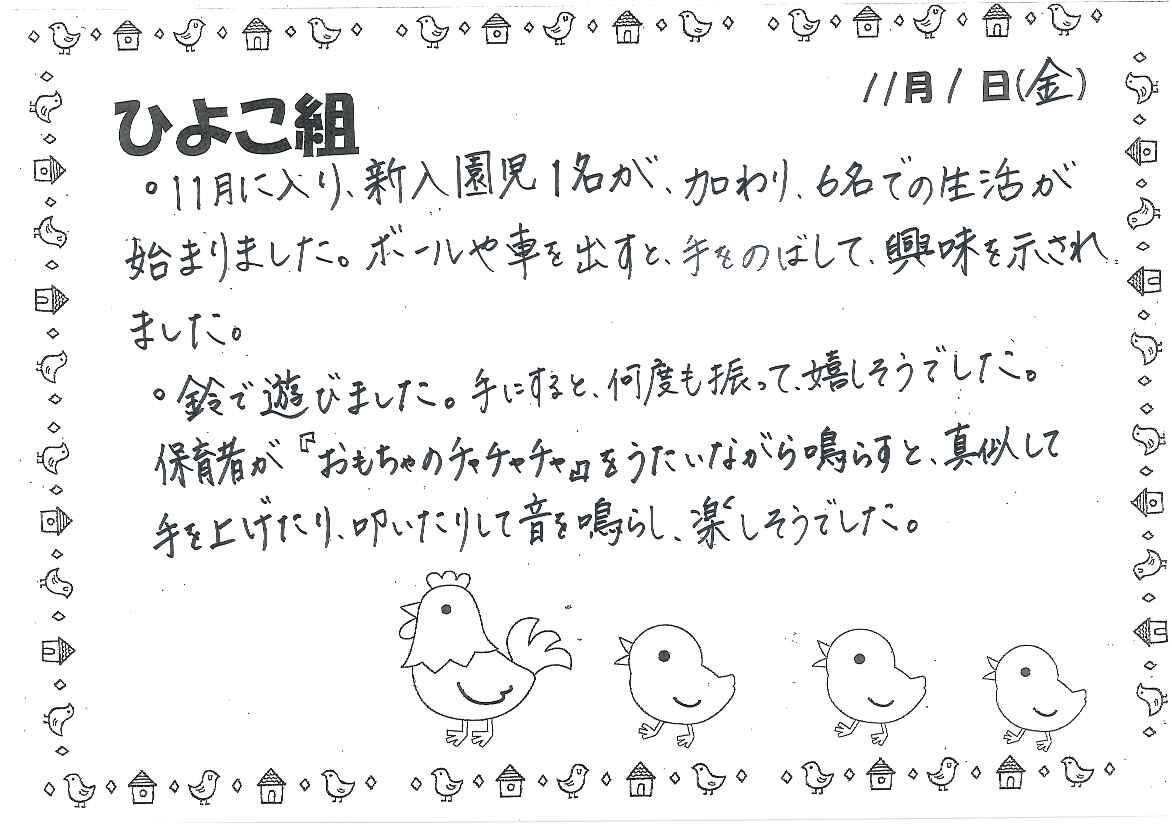 11月1日(金)
ひよこ組
。11月に入り、新入園児1名が、加わり、6名での生活が
始まりました。ボールや車を出すと、手をのばして、興味を示され
ました。
。鈴で遊びました。手にすると、何度も振って、嬉しそうでした。
保育者が『おもちゃのチャチャチャ』をうたいながら鳴らすと、真似して
手を上げたり、叩いたりして音を鳴らし、楽しそうでした。